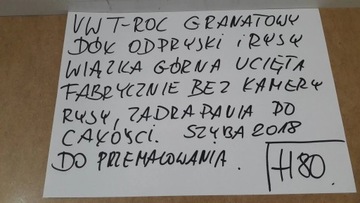 VW T-ROC GRANATOWY
DÓŁ ODPRYSKI i RYSY
WIĄZKA GÓRNA UCIĘTA
FABRYCZNIE BEZ KAMERY
RYSY, ZADRAPANIA DO
CAŁOŚCI. SZYBA 2018
DO PRZEMALOWANIA. H80.